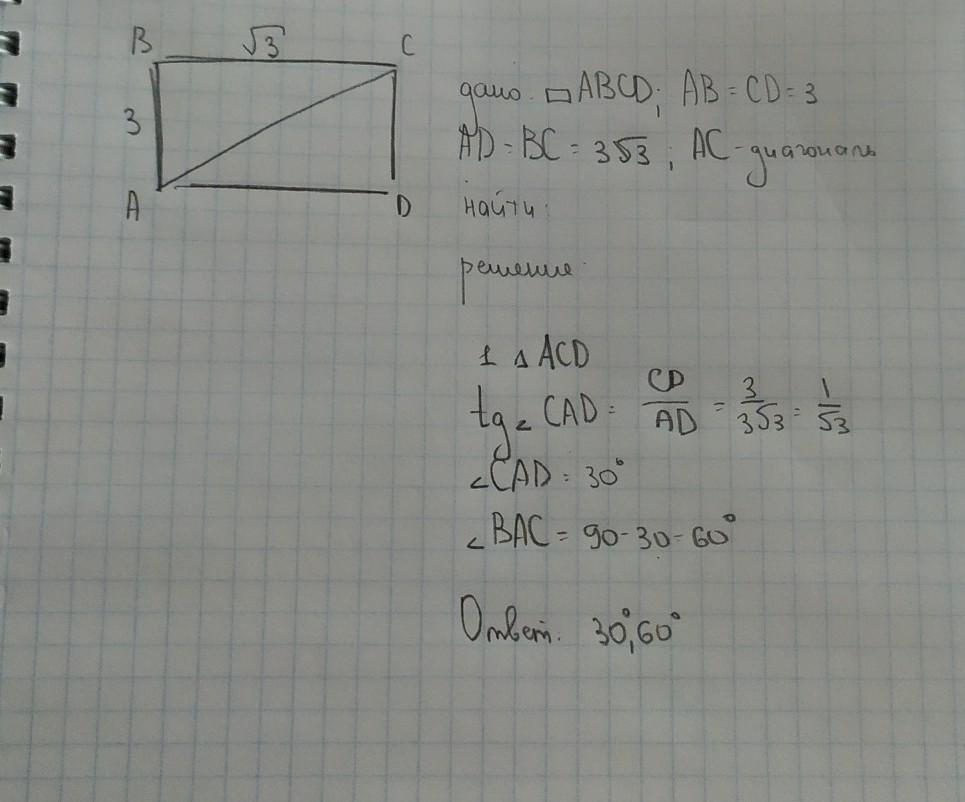 B √3 C
3
A D
дано. ▭ABCD; AB = CD = 3
AD = BC = 3√3; AC - диагональ
найти:
решение:
1 Δ ACD
tg∠CAD = CD/AD = 3/3√3 = 1/√3
∠CAD = 30°
∠BAC = 90-30=60°
Ответ. 30°,60°